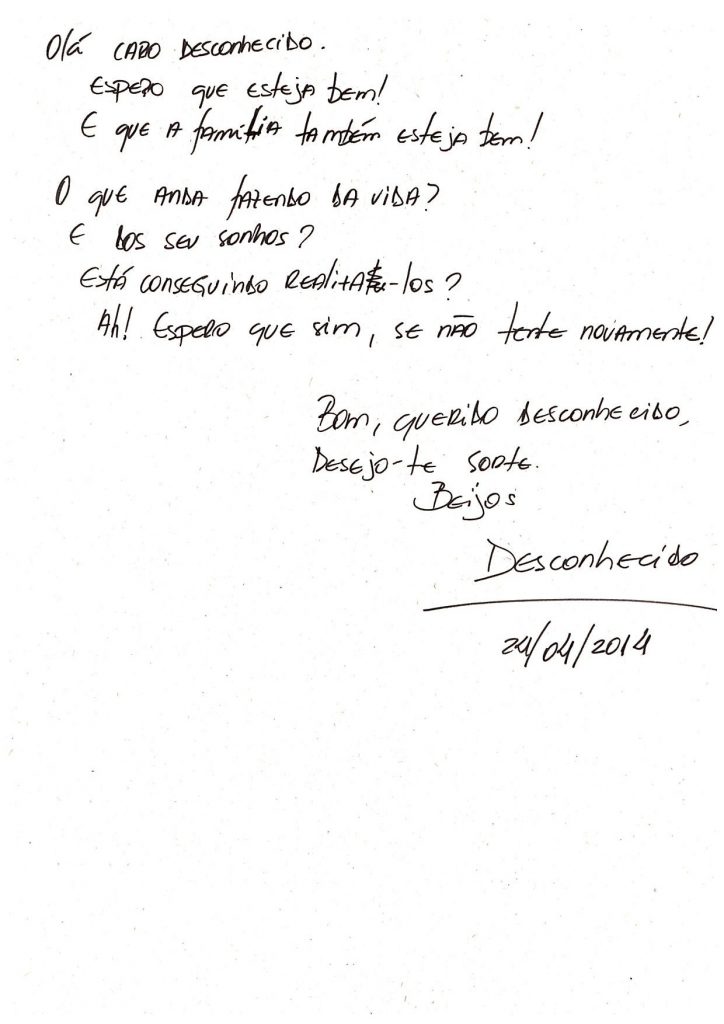 Olá caro desconhecido.
Espero que esteja bem!
E que a família também esteja bem!
O que anda fazendo da vida?
E dos seu sonhos?
Está conseguindo realizá-los?
Ah! Espero que sim, se não tente novamente!
Bom, querido desconhecido,
Desejo-te sorte.
Beijos
Desconhecido
24/04/2014